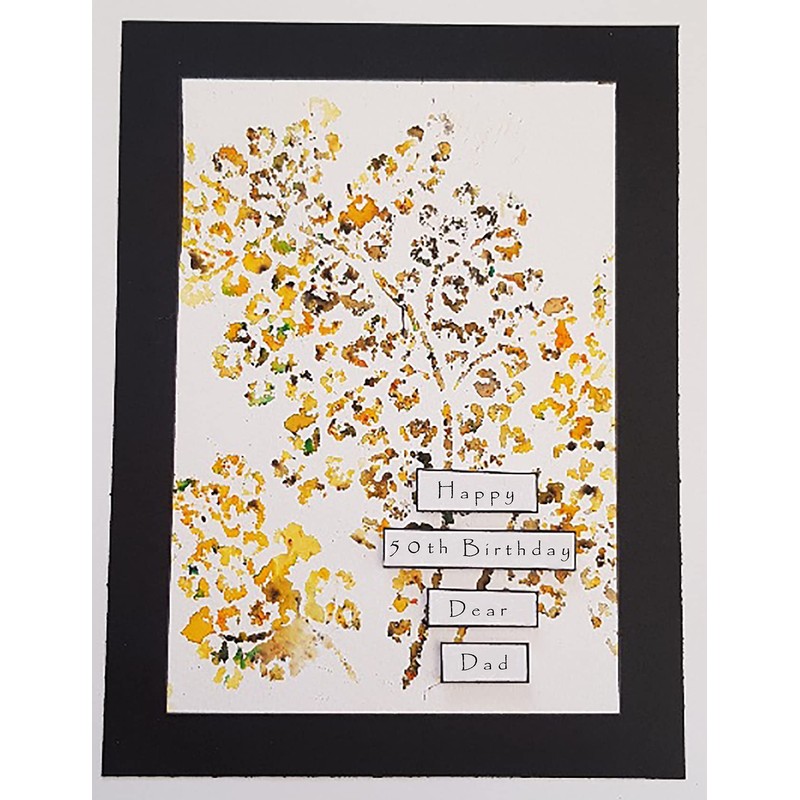 Happy
50th Birthday
Dear
Dad